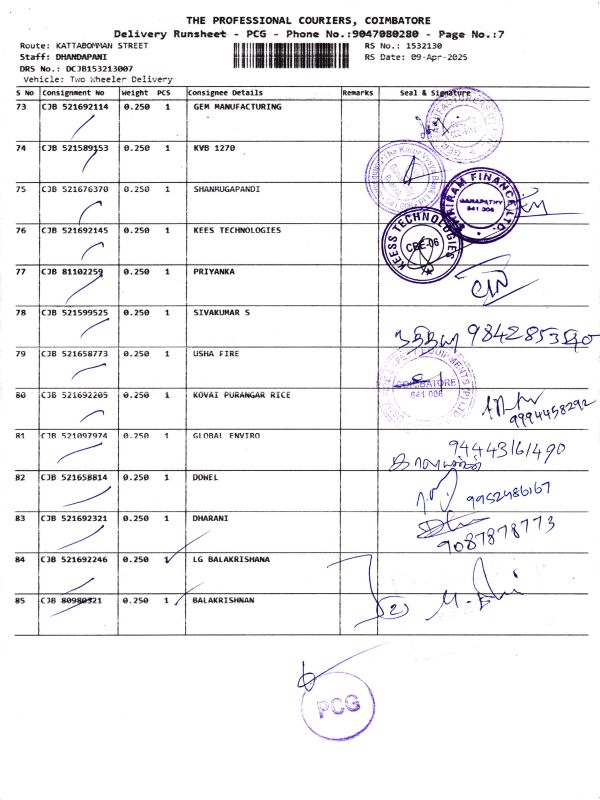 THE PROFESSIONAL COURIERS, COIMBATORE
Delivery Runsheet - PCG - Phone No.:9047080280 - Page No.:7
Route: KATTABOMMAN STREET
RS No.: 1532130
Staff: DHANDAPANI
RS Date: 09-Apr-2025
DRS No.: DCJB153213007
Vehicle: Two Wheeler Delivery
S No Consignment No Weight PCS Consignee Details Remarks Seal & Signature
73 CJB 521692114 0.250 1 GEM MANUFACTURING
74 CJB 521589153 0.250 1 KVB 1270
75 CJB 521676370 0.250 1 SHANMUGAPANDI
SHRIRAM FINANCE LTD.
GANAPATHY
641 006
76 CJB 521692145 0.250 1 KEES TECHNOLOGIES
KEESS TECHNOLOGIES
CBE-06
77 CJB 81102259 0.250 1 PRIYANKA
78 CJB 521599525 0.250 1 SIVAKUMAR S
79 CJB 521658773 0.250 1 USHA FIRE
COIMBATORE
641 006
80 CJB 521692205 0.250 1 KOVAI PURANGAR RICE
9994458292
81 CJB 521097974 0.250 1 GLOBAL ENVIRO
94443161490
82 CJB 521658814 0.250 1 DOWEL
9952486167
83 CJB 521692321 0.250 1 DHARANI
9087878773
84 CJB 521692246 0.250 1 LG BALAKRISHANA
85 CJB 80980321 0.250 1 BALAKRISHNAN
2
PCG